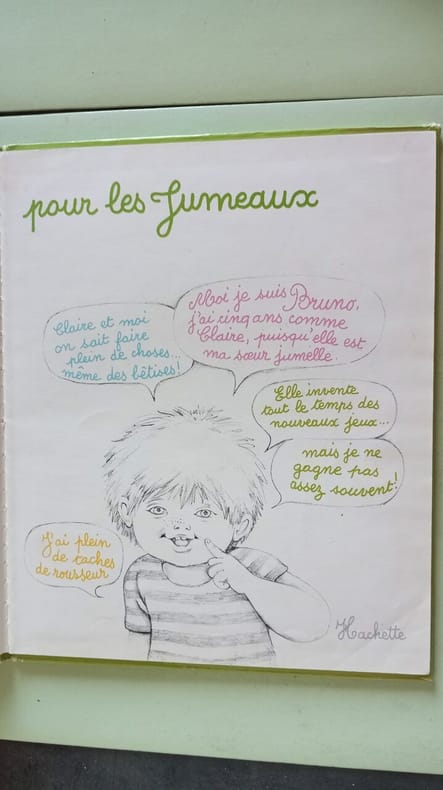 pour les Jumeaux
Claire et moi
on sait faire
plein de choses...
même des bêtises!
Moi je suis Bruno,
j'ai cinq ans comme
Claire, puisqu'elle est
ma sœur jumelle.
Elle invente
tout le temps des
nouveaux jeux...
mais je ne
gagne pas
assez souvent!
J'ai plein
de taches
de rousseur
Hachette